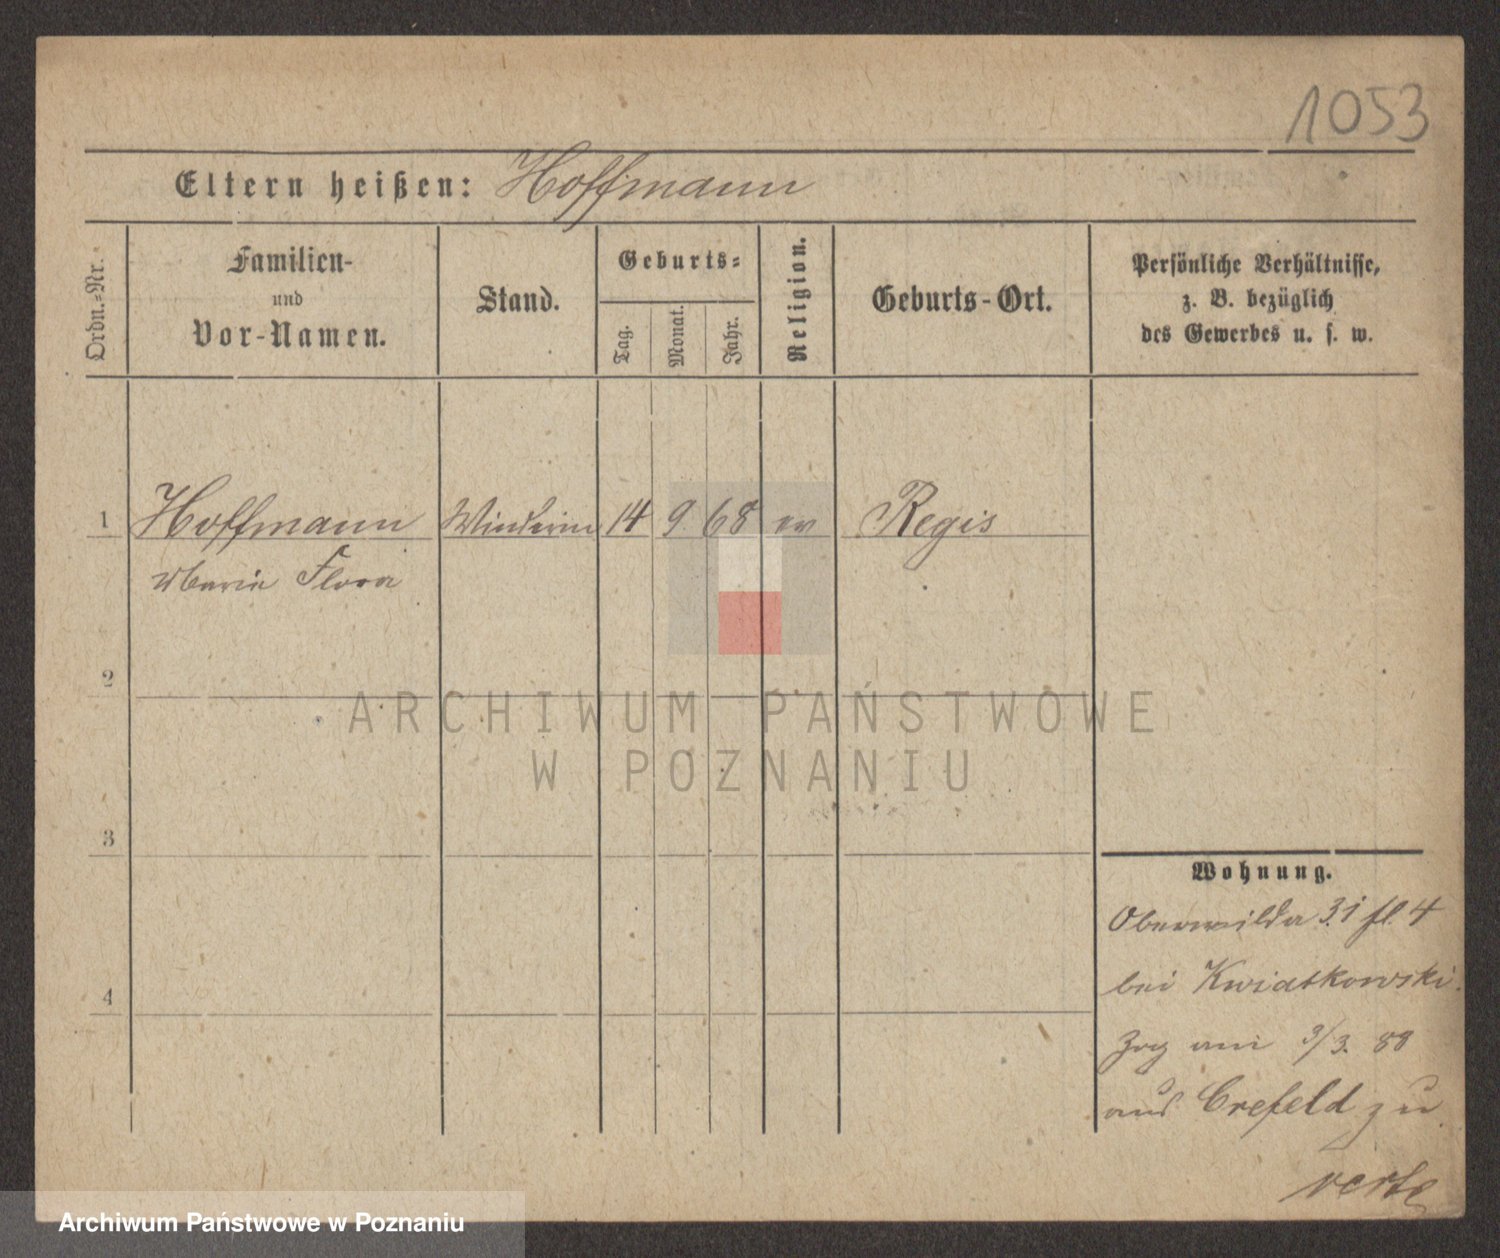 1053
Eltern heißen: Hoffmann
Ordn.=Nr.
Familien-
und
Vor-Namen.
Stand.
Geburts=
Tag.
Monat.
Jahr.
Religion.
Geburts-Ort.
Persönliche Verhältnisse,
z. B. bezüglich
des Gewerbes u. s. w.
1 Hoffmann 14 9 68 ev Regis
Marie Flora
2
ARCHIWUM PAŃSTWOWE
W POZNANIU
3
Wohnung.
Oberwilda 31 fl. 4
bei Kwiatkowski.
4
Zog am 3/3. 88
aus Crefeld zu
verte
Archiwum Państwowe w Poznaniu